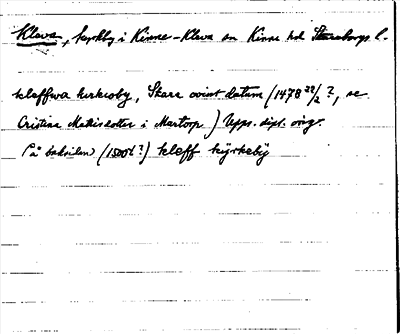 Kleva, kyrkby i Kinne-Kleva sn Kinne hd Skaraborgs l.
kleffwa kirkeoby, Skara ovisst datum (1478 22/2 ?, se
Cristina Matisdotter i Martorp) Upps. dipl. orig.
På baksidan (1500t ?) kleff kÿrkebÿ